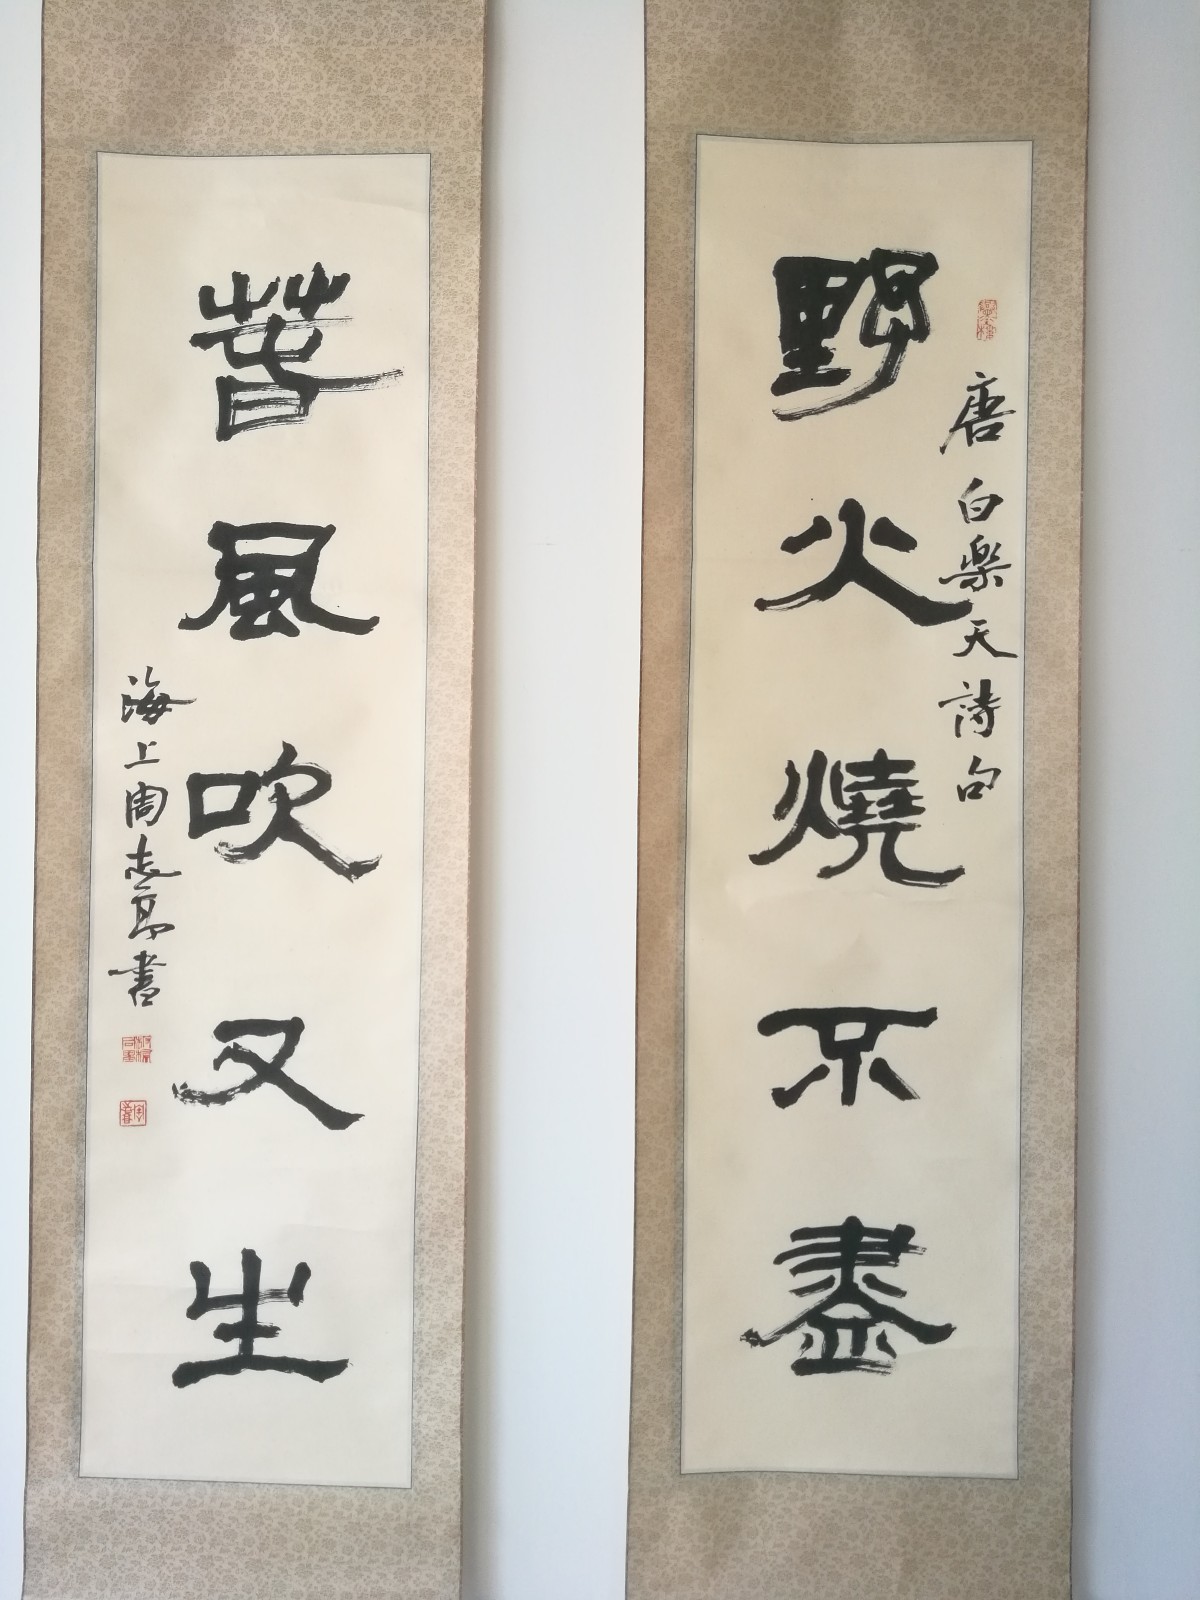 野火燒不盡
唐白樂天詩句
萅風吹又生
海上周志高書